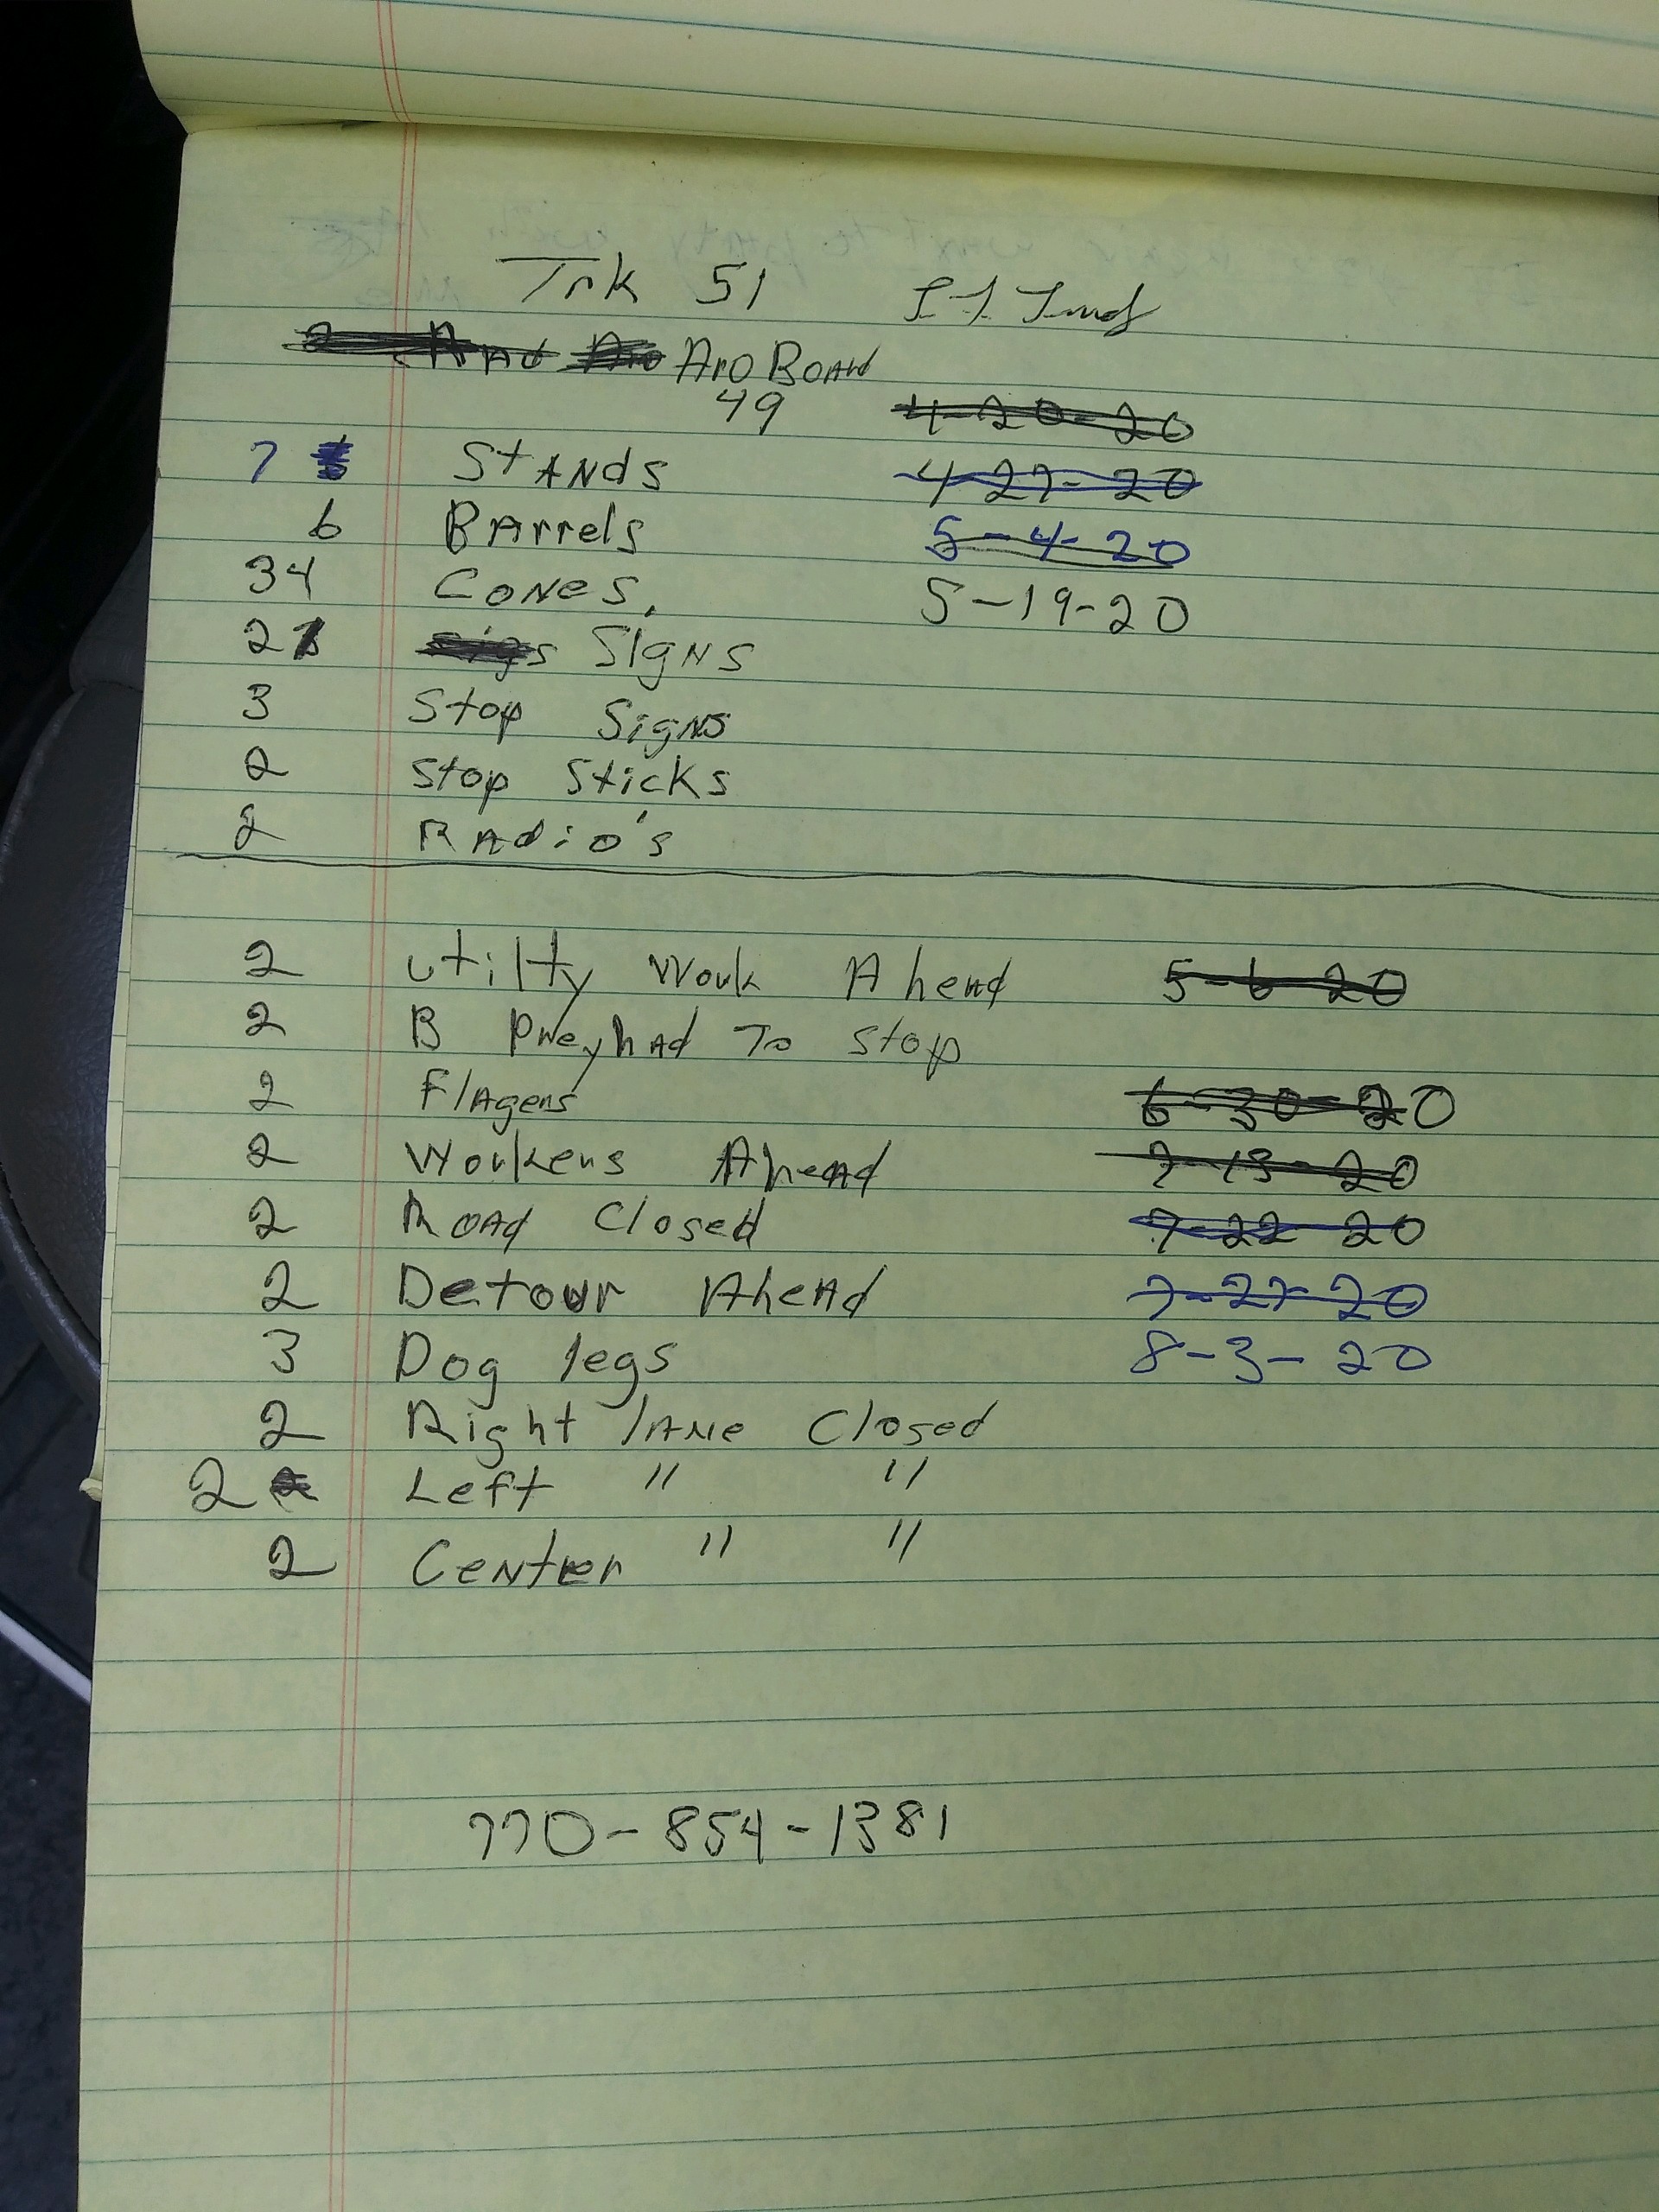 Trk 51
Aro Board
49 4-20-20
7 Stands 4-27-20
6 Barrels 5-4-20
34 Cones, 5-19-20
21 Signs
3 Stop Signs
2 Stop Sticks
2 Radio's
2 Utilty Work Ahead 5-6-20
2 B Preyhad To Stop
2 Flagers 6-30-20
2 Workers Ahead 7-13-20
2 Road Closed 7-22-20
2 Detour Ahead 7-27-20
3 Dog legs 8-3-20
2 Right lane Closed
2 Left " "
2 Center " "
770-854-1381